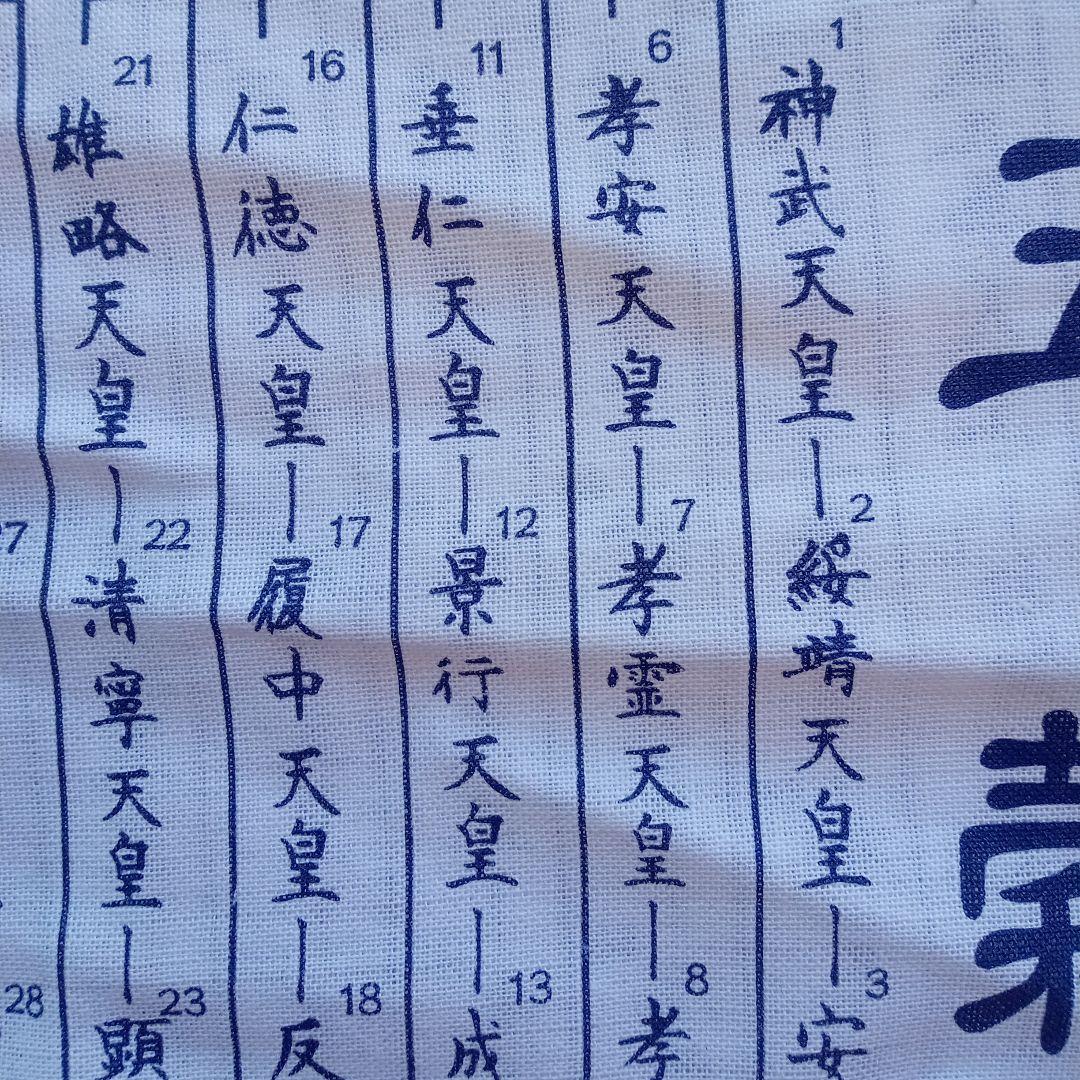 1
神武天皇
2
綏靖天皇
3
安
6
孝安天皇
7
孝霊天皇
8
孝
11
垂仁天皇
12
景行天皇
13
成
16
仁徳天皇
17
履中天皇
18
反
21
雄略天皇
22
清寧天皇
23
顕
28